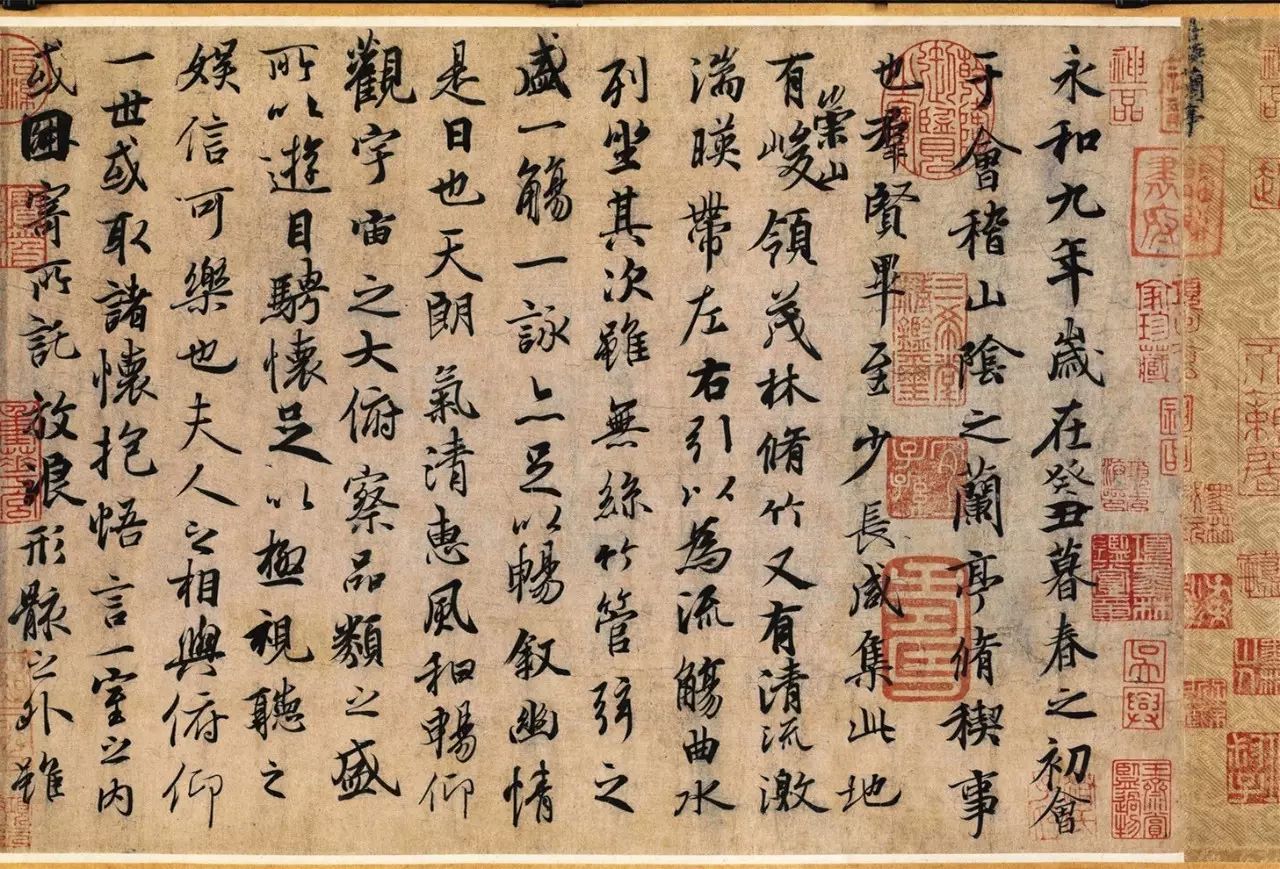 神品
家珍藏
吳興
永和九年歲在癸丑暮春之初會
于會稽山陰之蘭亭脩稧事
三希堂精鑑璽
宜子孫
也羣賢畢至少長咸集此地
有崇山峻領茂林脩竹又有清流激
湍暎帶左右引以為流觴曲水
列坐其次雖無絲竹管弦之
盛一觴一詠亦足以暢敘幽情
是日也天朗氣清惠風和暢仰
觀宇宙之大俯察品類之盛
所以遊目騁懷足以極視聽之
娛信可樂也夫人之相與俯仰
一世或取諸懷抱悟言一室之內
或因寄所託放浪形骸之外雖